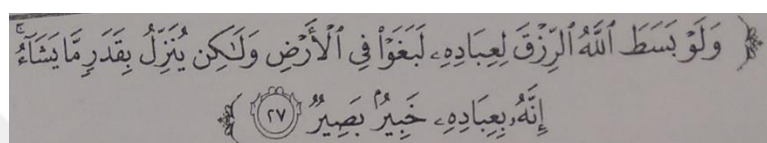 ﴿ وَلَوْ بَسَطَ ٱللَّهُ ٱلرِّزْقَ لِعِبَادِهِۦ لَبَغَوْا۟ فِى ٱلْأَرْضِ وَلَـٰكِن يُنَزِّلُ بِقَدَرٍ مَّا يَشَآءُ ۚ
إِنَّهُۥ بِعِبَادِهِۦ خَبِيرٌۢ بَصِيرٌ ٢٧ ﴾